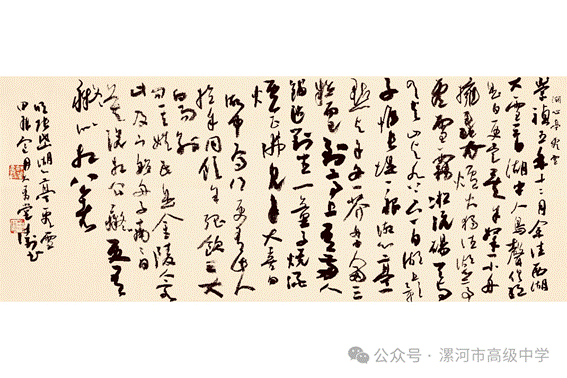 湖心亭看雪
崇祯五年十二月余住西湖
大雪三日湖中人鸟声俱绝
是日更定矣余拏一小舟
拥毳衣炉火独往湖心亭
看雪雾凇沆砀天与
云与山与水上下一白湖上影
子惟长堤一痕湖心亭一
点与余舟一芥舟中人两三
粒而已到亭上有两人
铺毡对坐一童子烧酒
炉正沸见余大喜曰
湖中焉得更有此人
拉余同饮余强饮三大
白而别
问其姓氏是金陵人客
此及下船舟子喃喃曰
莫说相公痴更有
痴似相公者
明张岱湖心亭看雪
公众号 · 漯河市高级中学